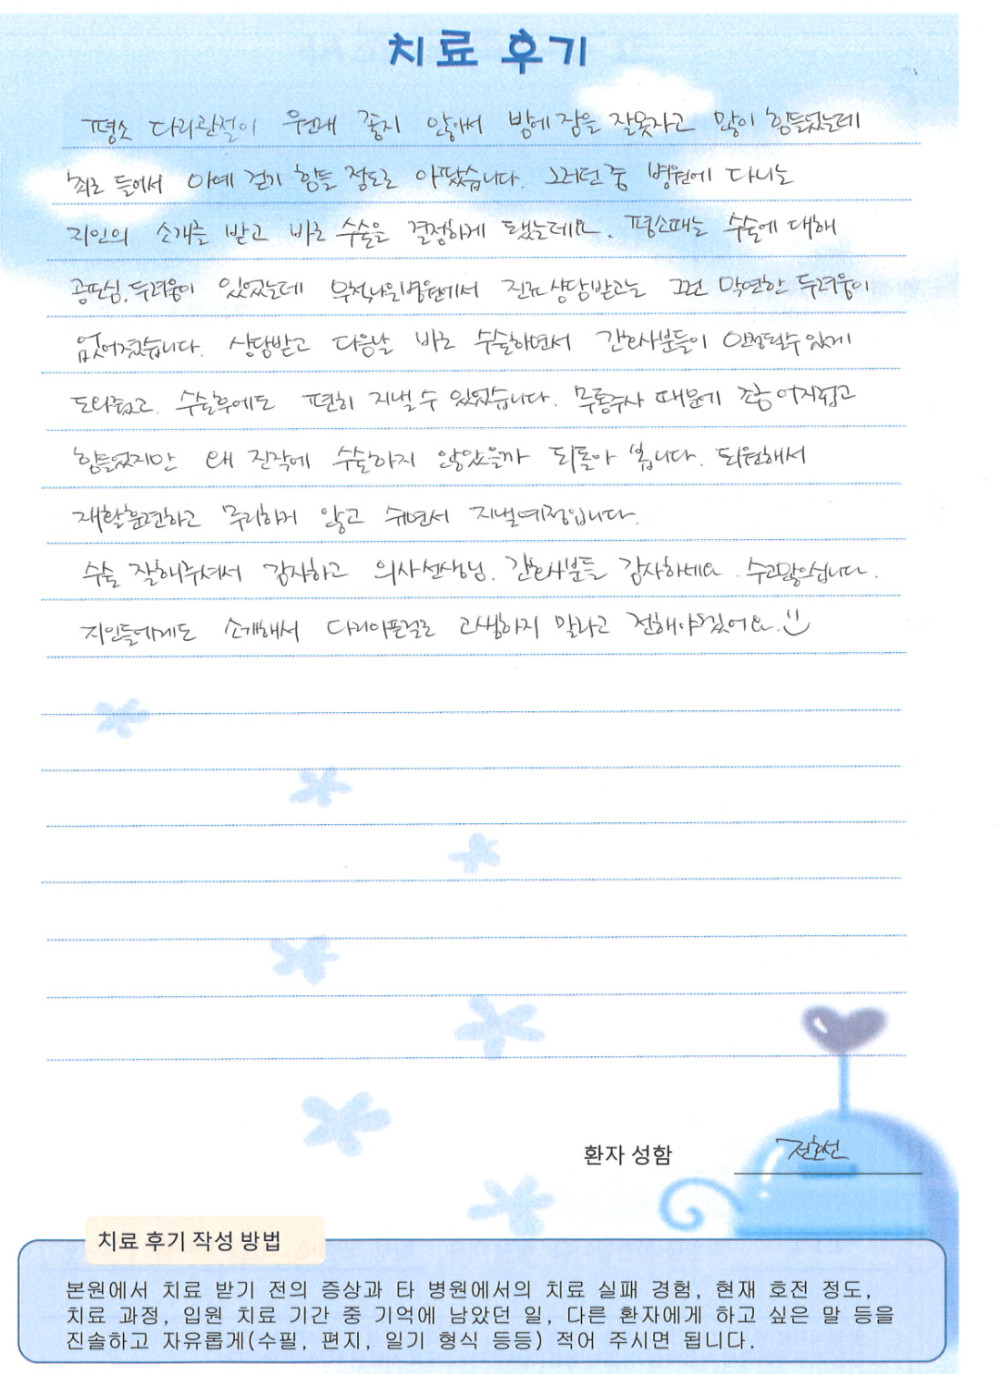 치료 후기
평소 다리관절이 원래 좋지 않아서 밤에 잠을 잘못자고 많이 힘들었는데
최근 들어서 아예 걷기 힘들 정도로 아팠습니다. 그러던 중 병원에 다니는
지인의 소개를 받고 바로 수술을 결정하게 됐는데요. 평소때는 수술에 대해
공포심, 두려움이 있었는데 부천나일병원에서 진료 상담받고는 그런 막연한 두려움이
없어졌습니다. 상담받고 다음날 바로 수술하면서 간호사분들이 안정될수 있게
도와줬고. 수술후에도 편히 지낼 수 있었습니다. 무통주사 때문에 조금 어지럽고
힘들었지만 왜 진작에 수술하지 않았을까 되돌아 봅니다. 퇴원해서
재활훈련하고 무리하게 않고 쉬면서 지낼예정입니다.
수술 잘해주셔서 감사하고 의사선생님. 간호사분들 감사하세요. 수고많으십니다.
지인들에게도 소개해서 다리아픈걸로 고생하지 말라고 전해야겠어요.
환자 성함
치료 후기 작성 방법
본원에서 치료 받기 전의 증상과 타 병원에서의 치료 실패 경험, 현재 호전 정도,
치료 과정, 입원 치료 기간 중 기억에 남았던 일, 다른 환자에게 하고 싶은 말 등을
진솔하고 자유롭게(수필, 편지, 일기 형식 등등) 적어 주시면 됩니다.